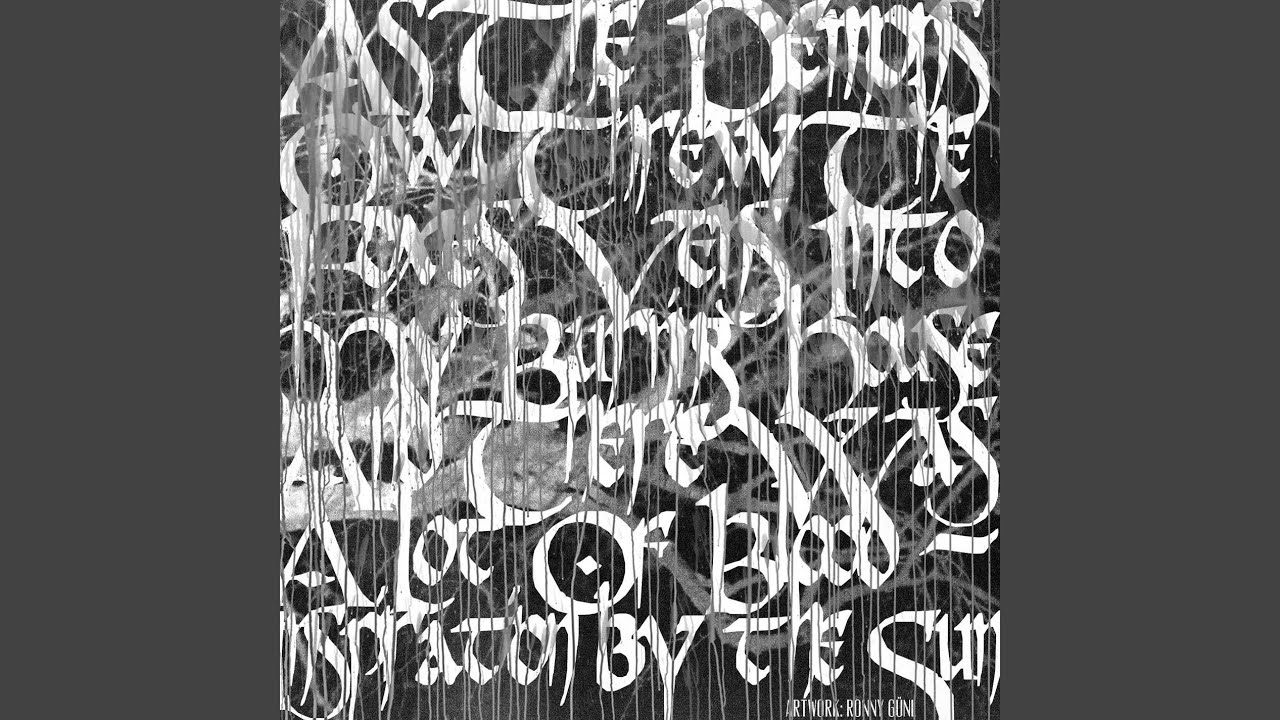 As The Demons
Threw The
Into
My Burning House
There Was
A Lot Of Blood
Inspiration By The Sun
ARTWORK: RONNY GÜNL